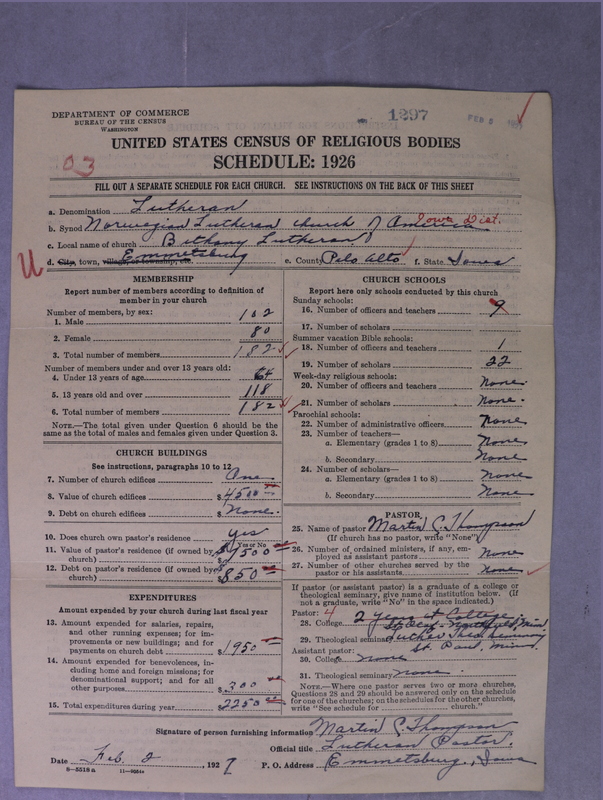 DEPARTMENT OF COMMERCE
BUREAU OF THE CENSUS
WASHINGTON
1297
FEB 5
UNITED STATES CENSUS OF RELIGIOUS BODIES
SCHEDULE: 1926
03
FILL OUT A SEPARATE SCHEDULE FOR EACH CHURCH. SEE INSTRUCTIONS ON THE BACK OF THIS SHEET
a. Denomination Lutheran
b. Synod Norwegian Lutheran church of America Iowa Dist.
c. Local name of church Bethany Lutheran
U
d. City, town, village, or township, etc. Emmetsburg e. County Palo Alto f. State Iowa
MEMBERSHIP
Report number of members according to definition of member in your church
Number of members, by sex:
1. Male 102
2. Female 80
3. Total number of members 182
Number of members under and over 13 years old:
4. Under 13 years of age 64
5. 13 years old and over 118
6. Total number of members 182
NOTE.—The total given under Question 6 should be the same as the total of males and females given under Question 3.
CHURCH BUILDINGS
See instructions, paragraphs 10 to 12
7. Number of church edifices One
8. Value of church edifices $4500
9. Debt on church edifices $None.
10. Does church own pastor's residence? yes
Yes or No
11. Value of pastor's residence (if owned by church) $7500
12. Debt on pastor's residence (if owned by church) $850
EXPENDITURES
Amount expended by your church during last fiscal year
13. Amount expended for salaries, repairs, and other running expenses; for improvements or new buildings; and for payments on church debt $1950
14. Amount expended for benevolences, including home and foreign missions; for denominational support; and for all other purposes $300
15. Total expenditures during year $2250
CHURCH SCHOOLS
Report here only schools conducted by this church
Sunday schools:
16. Number of officers and teachers 9
17. Number of scholars
Summer vacation Bible schools:
18. Number of officers and teachers 1
19. Number of scholars 22
Week-day religious schools:
20. Number of officers and teachers None.
21. Number of scholars None.
Parochial schools:
22. Number of administrative officers None
23. Number of teachers—
a. Elementary (grades 1 to 8) None
b. Secondary None
24. Number of scholars—
a. Elementary (grades 1 to 8) None
b. Secondary None
PASTOR
25. Name of pastor Martin C. Thompson
(If church has no pastor, write "None")
26. Number of ordained ministers, if any, employed as assistant pastors None
27. Number of other churches served by the pastor or his assistants None
If pastor (or assistant pastor) is a graduate of a college or theological seminary, give name of institution below. (If not a graduate, write "No" in the space indicated.)
Pastor: 4
28. College 2 years at College.
St. Olaf - Northfield, Minn
29. Theological seminary Luther Theo. Seminary
St. Paul, Minn.
Assistant pastor:
30. College None
31. Theological seminary None.
NOTE.—Where one pastor serves two or more churches, Questions 28 and 29 should be answered only on the schedule for one of the churches; on the schedules for the other churches, write "See schedule for church."
Signature of person furnishing information Martin C. Thompson
Official title Lutheran Pastor.
Date Feb. 2, 1927 P. O. Address Emmetsburg, Iowa
8—5518 a